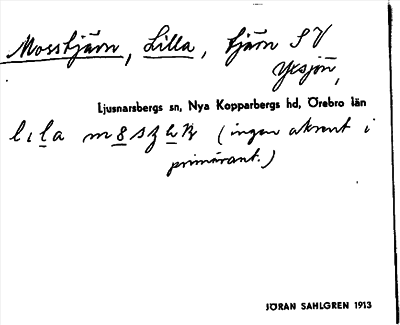 Mosstjärn, Lilla, tjärn SV
Yxsjön,
Ljusnarsbergs sn, Nya Kopparbergs hd, Örebro län
(ingen akcent i
primärant.)
JÖRAN SAHLGREN 1913